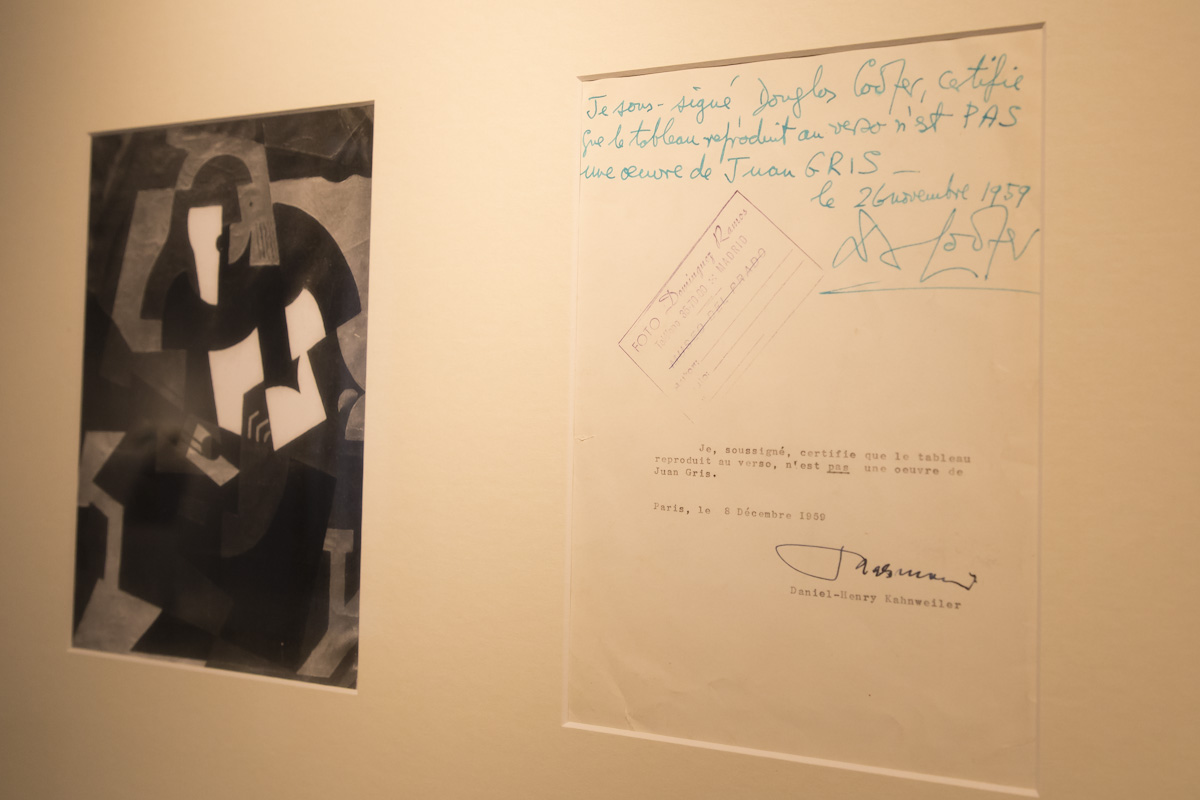 Je sous-signé Douglas Cooper, certifie
que le tableau reproduit au verso n'est PAS
une œuvre de Juan GRIS —
le 26 novembre 1959
D Cooper
FOTO Dominguez Ramos
MADRID
DEL PRADO
Je, soussigné, certifie que le tableau
reproduit au verso, n'est pas une oeuvre de
Juan Gris.
Paris, le 8 Décembre 1959
Daniel-Henry Kahnweiler